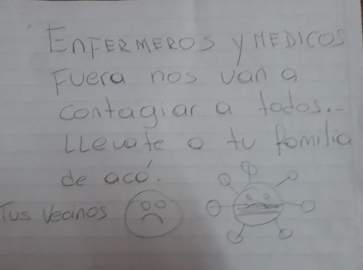 ENFERMEROS y MEDICOS
Fuera nos van a
contagiar a todos.-
LLevate a tu familia
de acá.
Tus vecinos